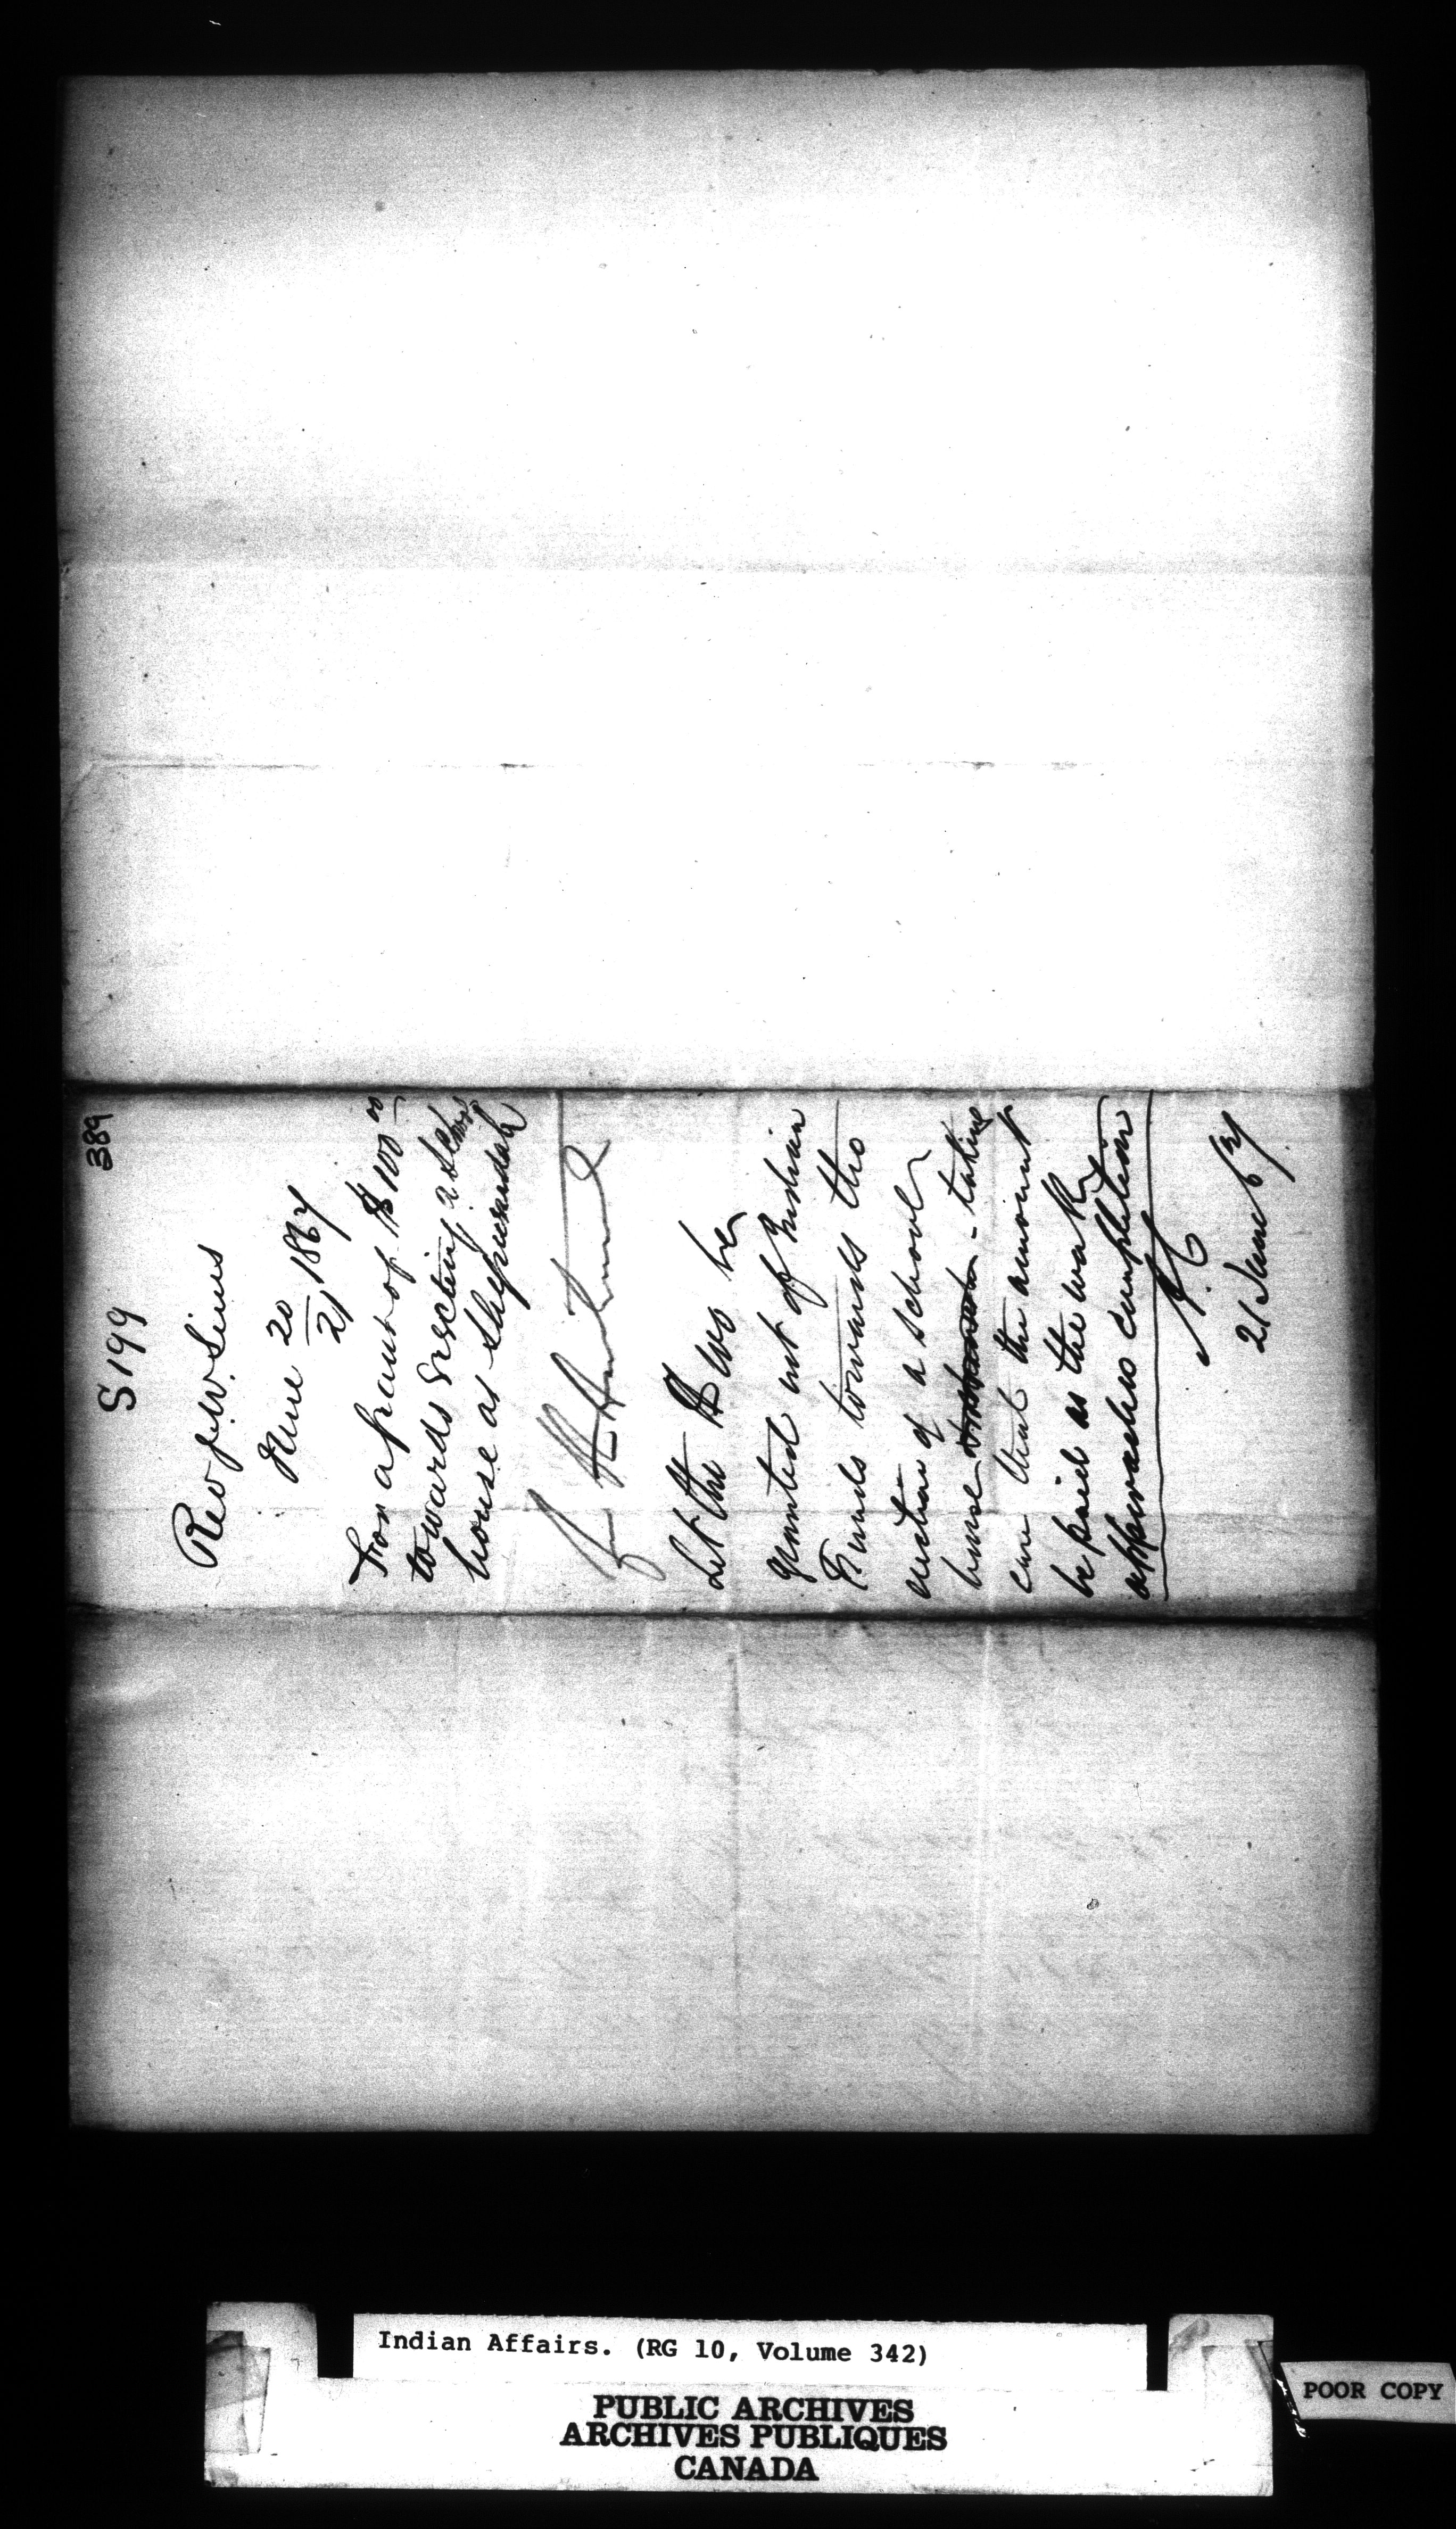 389
S 199
Rev J. W. Sims
June 20/21 1867
For a grant of $100 00
towards Erecting a School
house at Sheguiandah
Let the $100 be
granted out of Indian
Funds towards the
erection of a school
house - taking
care that the amount
be paid as the work
approaches completion
21 June 67
Indian Affairs. (RG 10, Volume 342)
PUBLIC ARCHIVES
ARCHIVES PUBLIQUES
CANADA
POOR COPY